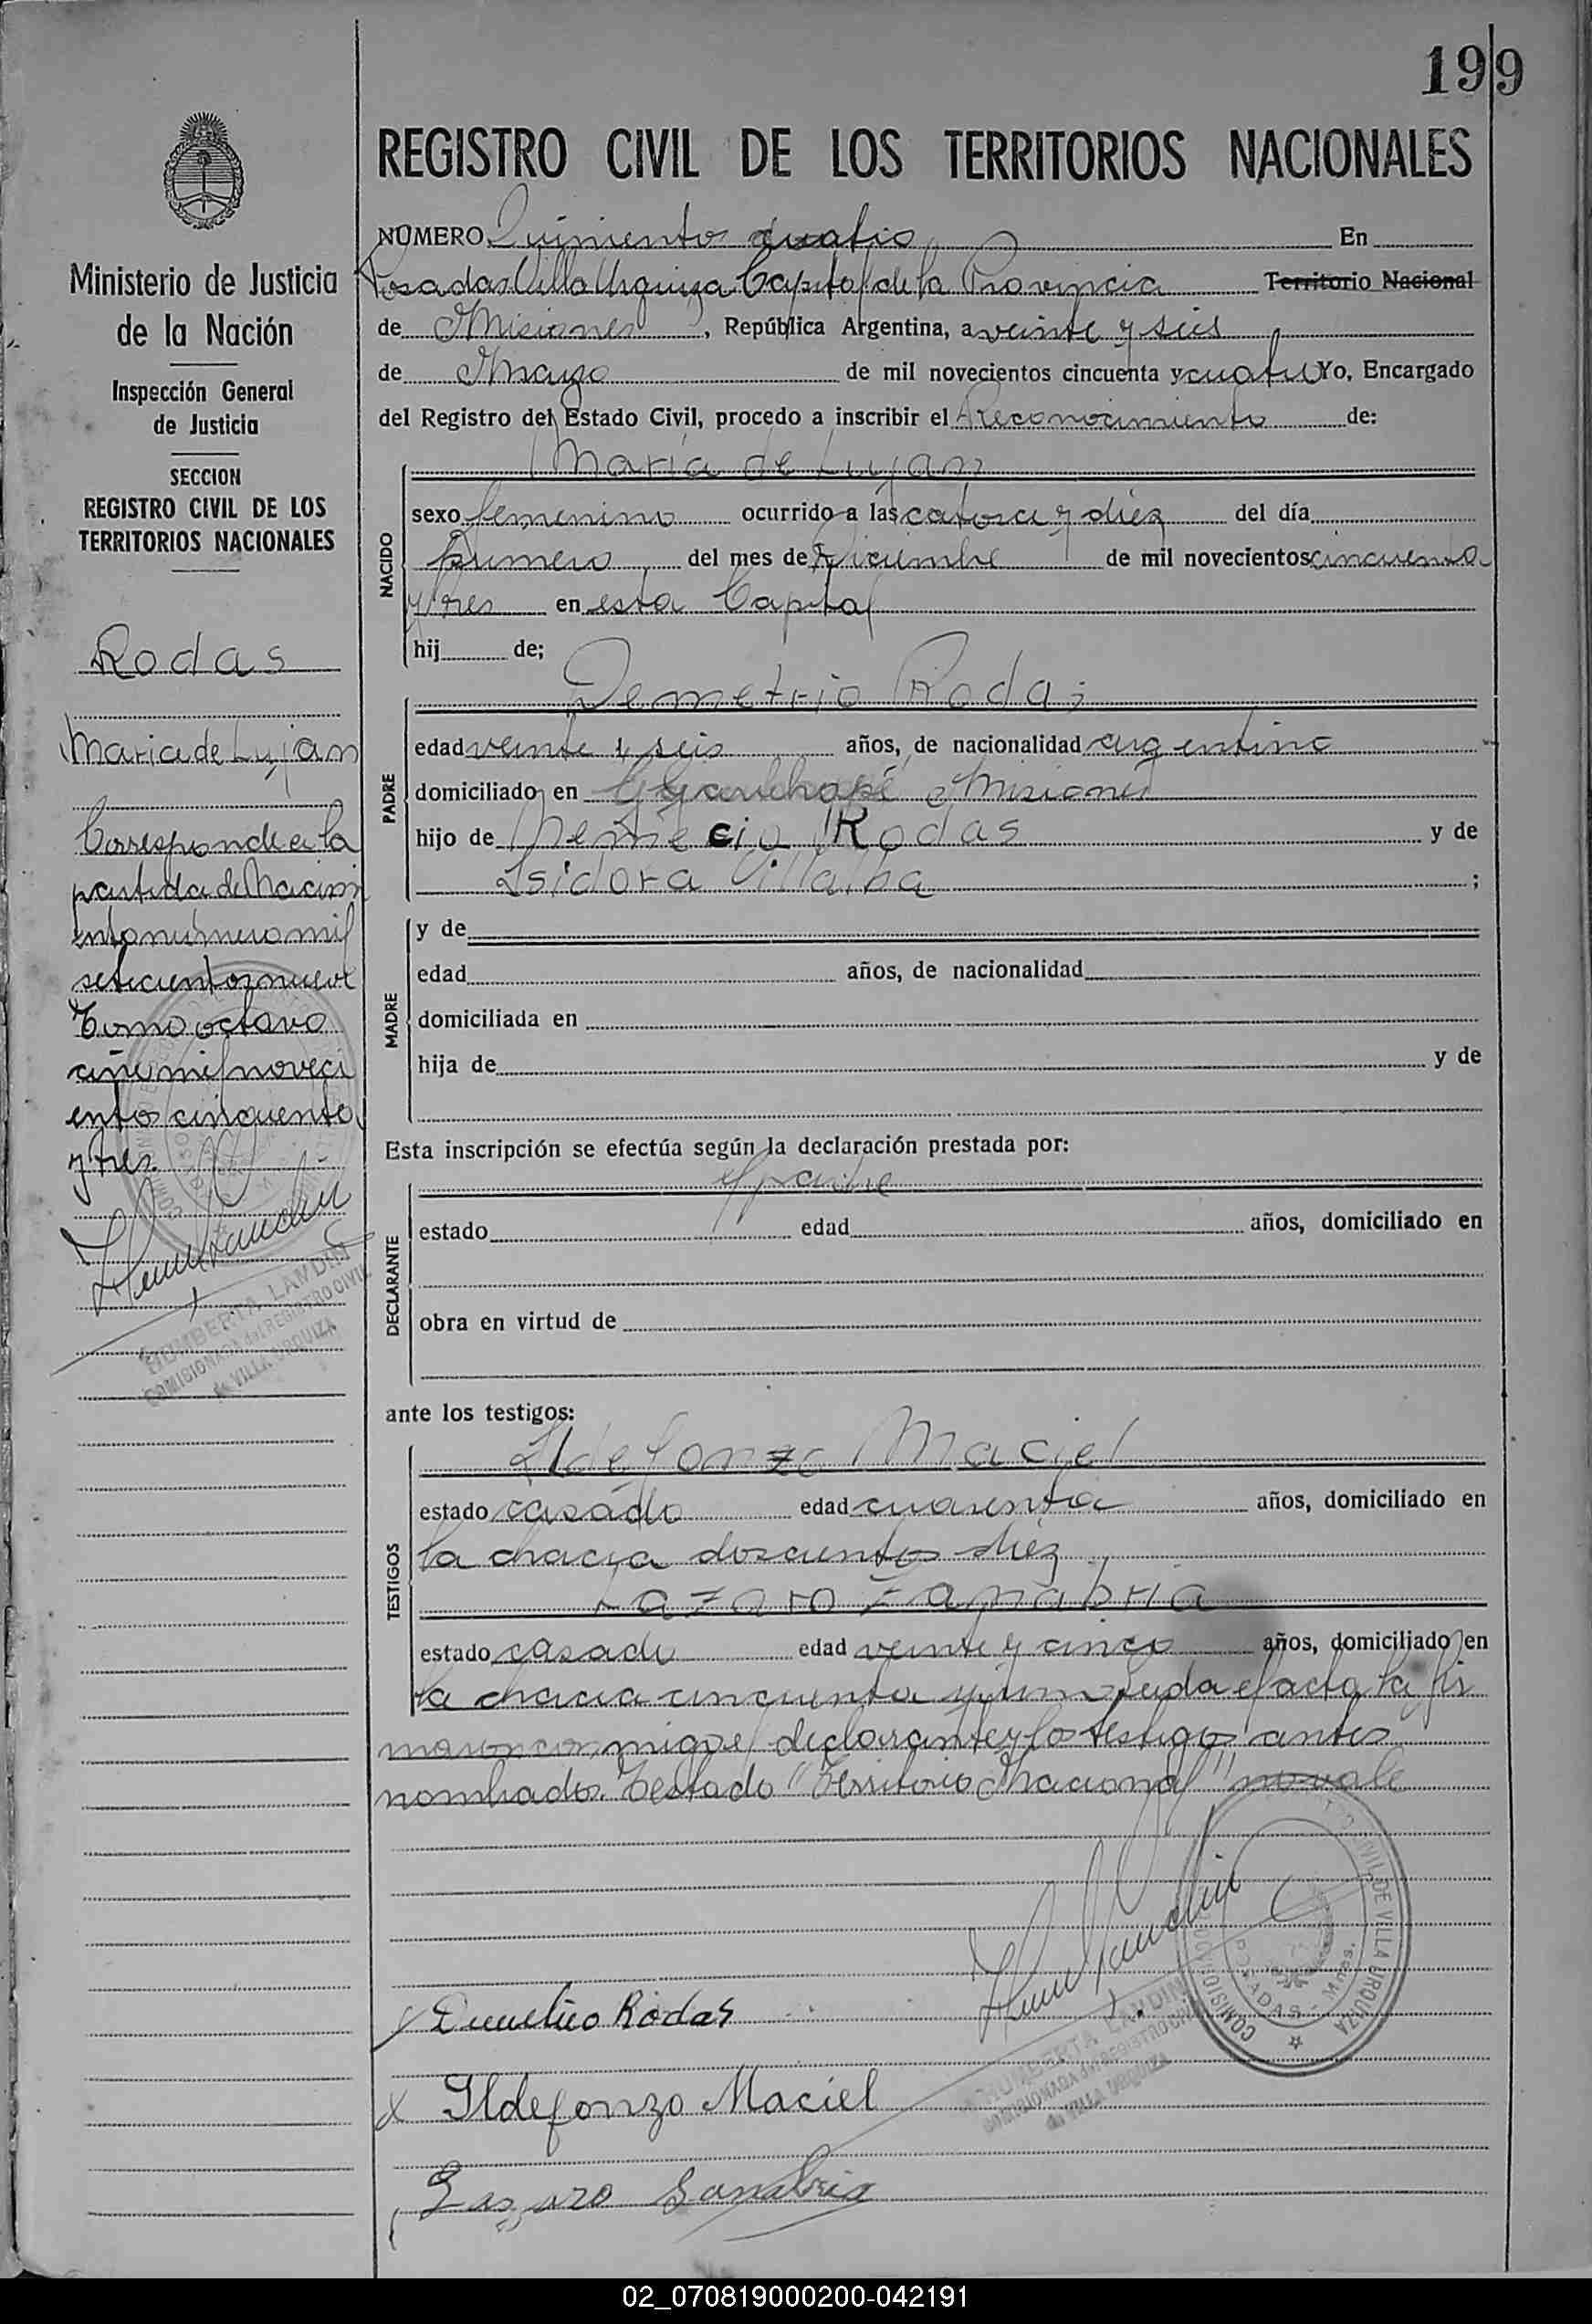 199
REGISTRO CIVIL DE LOS TERRITORIOS NACIONALES
Ministerio de Justicia
de la Nación
Inspección General
de Justicia
SECCION
REGISTRO CIVIL DE LOS
TERRITORIOS NACIONALES
Rodas
Maria de Lujan
Corresponde a la
partida de Nacimi
ento numero mil
setecientos nueve
Tomo octavo
año mil noveci
entos cincuenta
y tres.
HUMBERTA LANDINI
COMISIONADA del REGISTRO CIVIL
de VILLA URQUIZA
NUMERO Quiniento cuatro En
Posadas Villa Urquiza Capital de la Provincia Territorio Nacional
de Misiones, República Argentina, a veinte y seis
de Marzo de mil novecientos cincuenta y cuatro Yo, Encargado
del Registro del Estado Civil, procedo a inscribir el Reconocimiento de:
Maria de Lujan
NACIDO
sexo femenino ocurrido a las catorce y diez del día
primero del mes de Diciembre de mil novecientos cincuenta
y tres en esta Capital
hij de;
Demetrio Rodas
PADRE
edad veinte y seis años, de nacionalidad argentino
domiciliado en Misiones
hijo de Nemecio Rodas y de
Isidora Villalba ;
MADRE
y de
edad años, de nacionalidad
domiciliada en
hija de y de
Esta inscripción se efectúa según la declaración prestada por:
padre
DECLARANTE
estado edad años, domiciliado en
obra en virtud de
ante los testigos:
Ildefonzo Maciel
TESTIGOS
estado casado edad cuarenta años, domiciliado en
la chacra doscientos diez
Lazaro Zanabria
estado casado edad veinte y cinco años, domiciliado en
la chacra cincuenta y uno Leida el acta la fir
maron conmigo el declarante y los testigos antes
nombrados. Testado "Territorio Nacional" no vale
COMISIONADO CIVIL DE VILLA URQUIZA
POSADAS - Mnes.
HUMBERTA LANDINI
COMISIONADA del REGISTRO CIVIL
de VILLA URQUIZA
Demetrio Rodas
Ildefonzo Maciel
Lazaro Sanabria
02_070819000200-042191